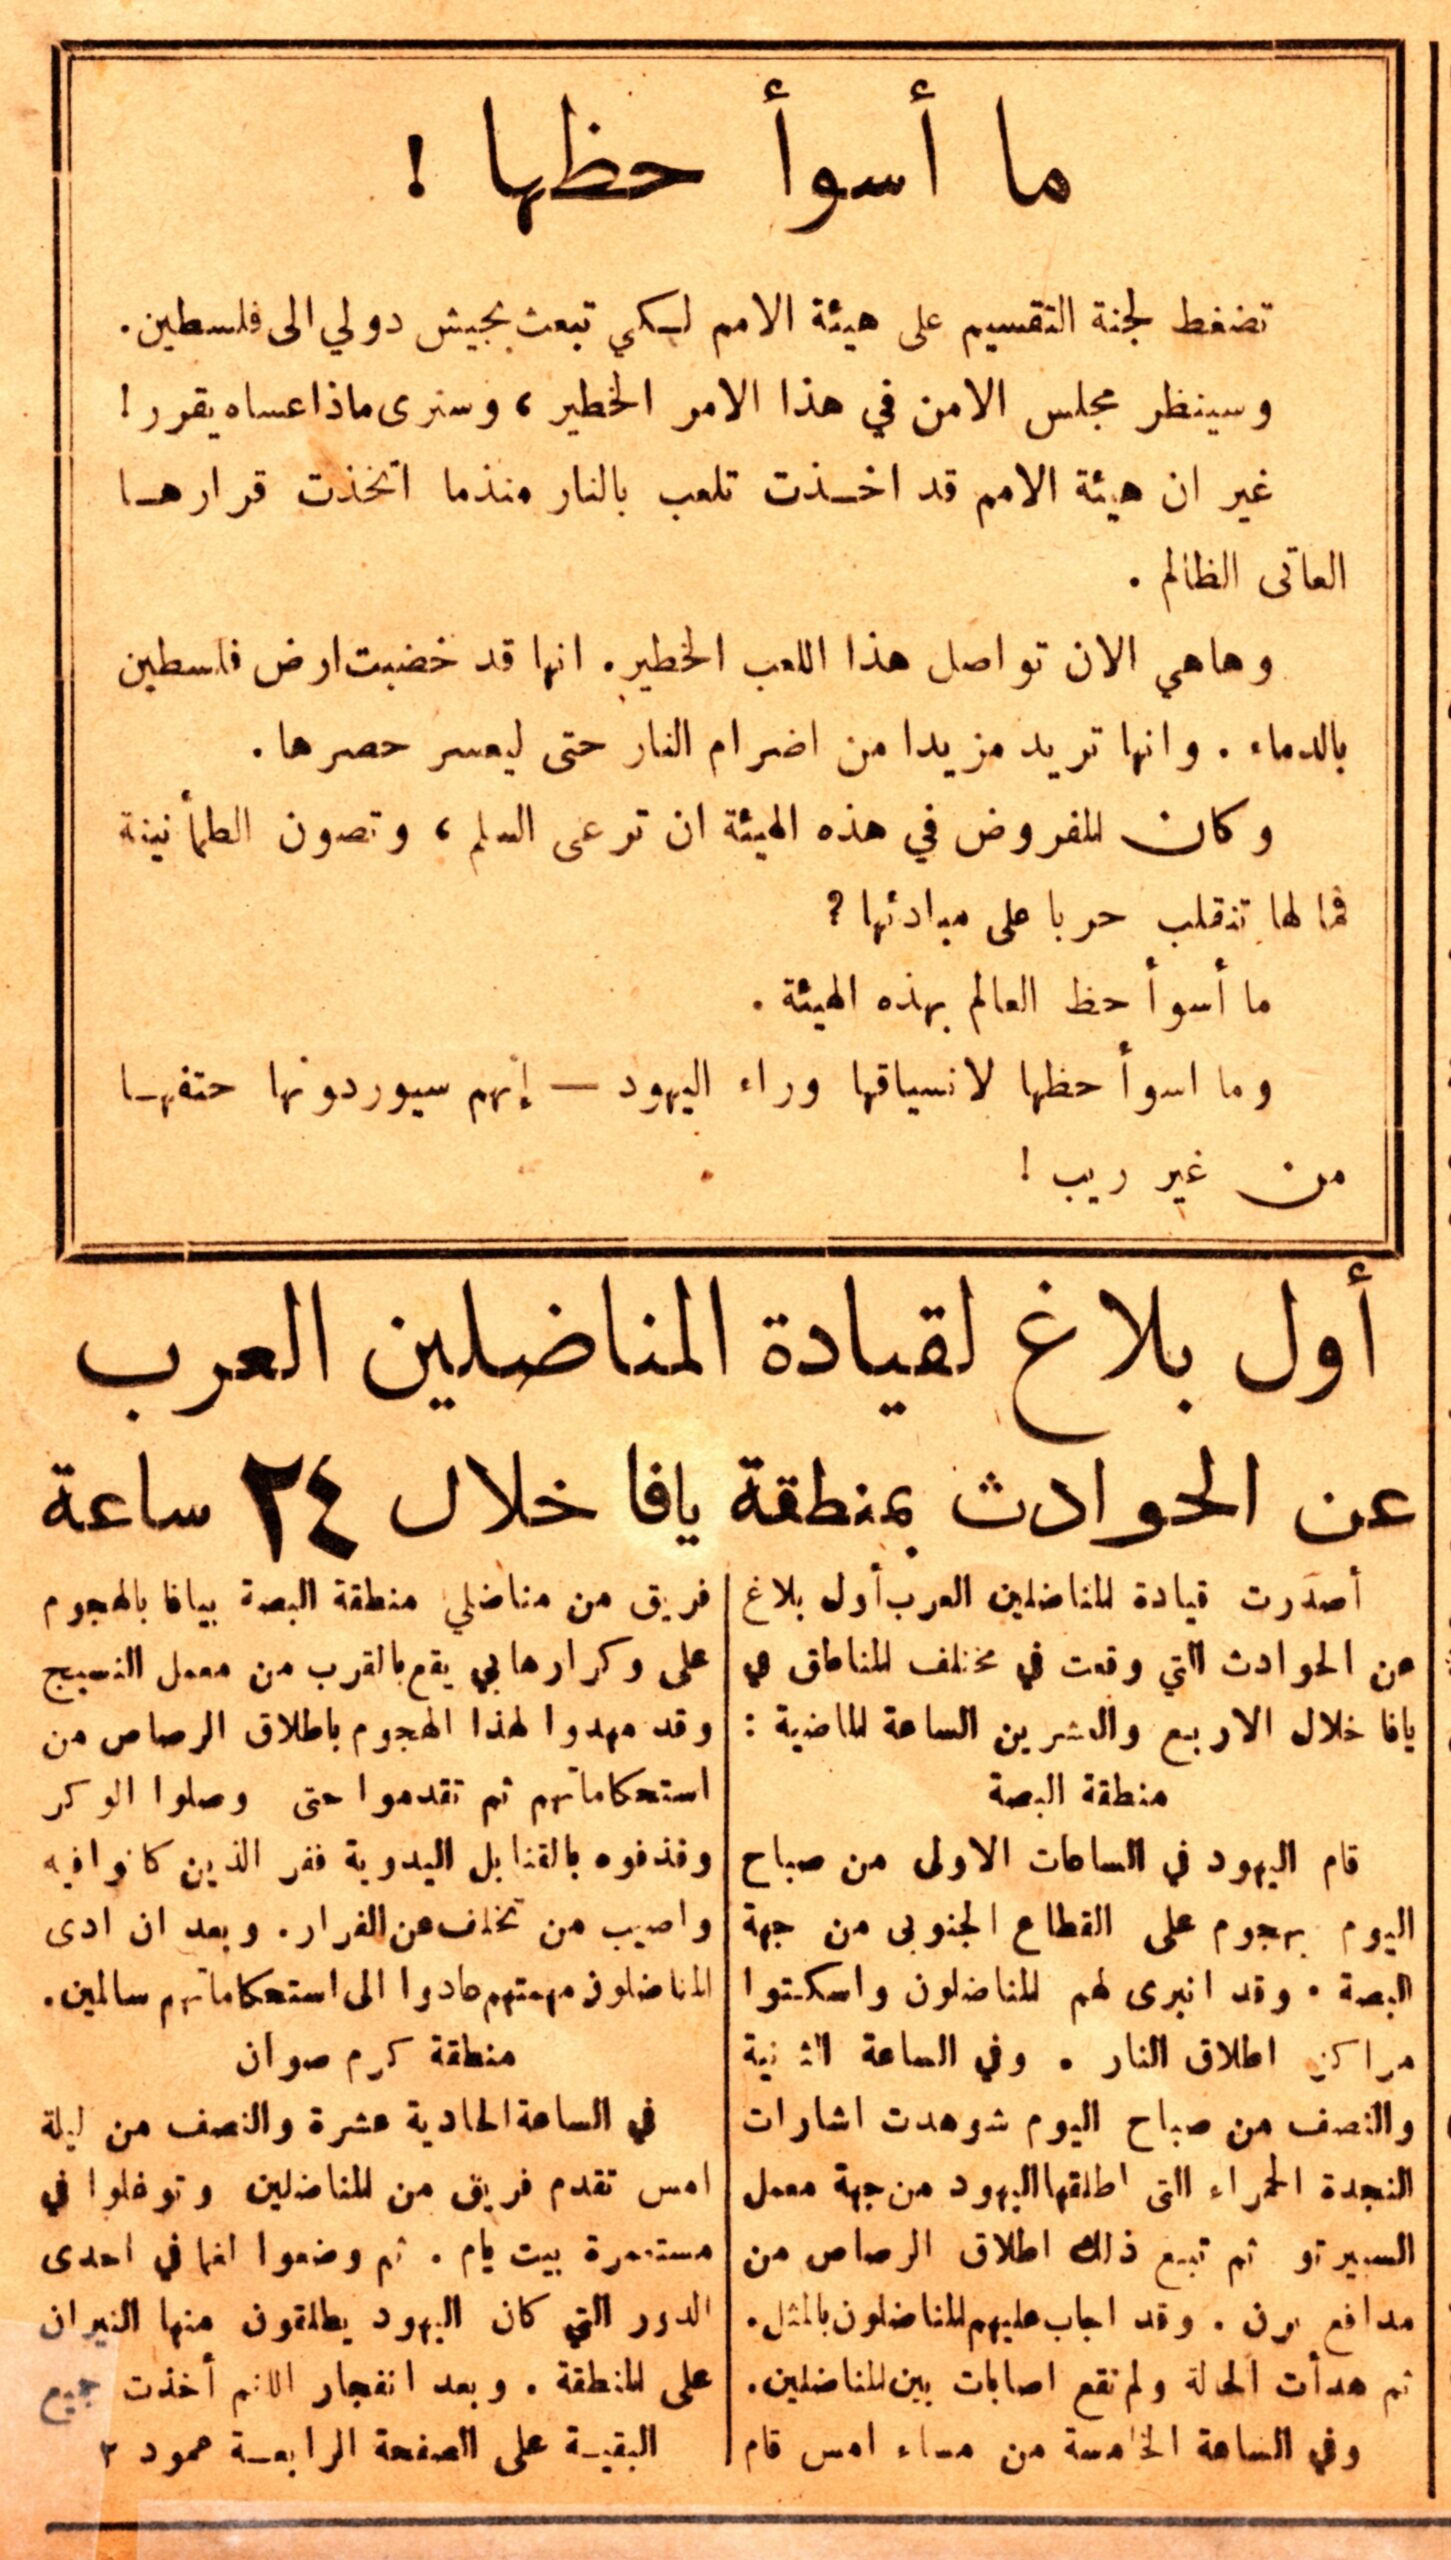 ما أسوأ حظها !
تضغط لجنة التقسيم على هيئة الامم لكي تبعث بجيش دولي الى فلسطين .
وسينظر مجلس الامن في هذا الامر الخطير ، وسنرى ماذا عساه يقرر !
غير ان هيئة الامم قد اخذت تلعب بالنار منذما اتخذت قرارها
العاتى الظالم .
وهاهي الان تواصل هذا اللعب الخطير . انها قد خضبت ارض فلسطين
بالدماء . وانها تريد مزيدا من اضرام النار حتى ليعسر حصرها .
وكان المفروض في هذه الهيئة ان ترعى السلم ، وتصون الطمأنينة
فما لها تنقلب حربا على مبادئها ?
ما أسوأ حظ العالم بهذه الهيئة .
وما اسوأ حظها لانسياقها وراء اليهود — إنهم سيوردونها حتفها
من غير ريب !
أول بلاغ لقيادة المناضلين العرب
عن الحوادث بمنطقة يافا خلال ٢٤ ساعة
أصدرت قيادة المناضلين العرب أول بلاغ
عن الحوادث التي وقعت في مختلف المناطق في
يافا خلال الاربع والعشرين الساعة الماضية :
منطقة البصة
قام اليهود في الساعات الاولى من صباح
اليوم بهجوم على القطاع الجنوبى من جهة
البصة . وقد انبرى لهم المناضلون واسكتوا
مراكز اطلاق النار . وفي الساعة الثانية
والنصف من صباح اليوم شوهدت اشارات
النجدة الحمراء التى اطلقها اليهود من جهة معمل
السبيرتو ثم تبع ذلك اطلاق الرصاص من
مدافع برن . وقد اجاب عليهم المناضلون بالمثل .
ثم هدأت الحالة ولم تقع اصابات بين المناضلين .
وفي الساعة الخامسة من مساء امس قام
فريق من مناضلي منطقة البصة بيافا بالهجوم
على وكر ارهابي يقع بالقرب من معمل النسيج
وقد مهدوا لهذا الهجوم باطلاق الرصاص من
استحكاماتهم ثم تقدموا حتى وصلوا الوكر
وقذفوه بالقنابل اليدوية ففر الذين كانوا فيه
واصيب من تخلف عن الفرار . وبعد ان ادى
المناضلون مهمتهم عادوا الى استحكاماتهم سالمين .
منطقة كرم صوان
في الساعة الحادية عشرة والنصف من ليلة
امس تقدم فريق من المناضلين وتوغلوا في
مستعمرة بيت يام . ثم وضعوا لغما في احدى
الدور التي كان اليهود يطلقون منها النيران
على المنطقة . وبعد انفجار اللغم أخذت جميع
البقية على الصفحة الرابعة عمود ٢